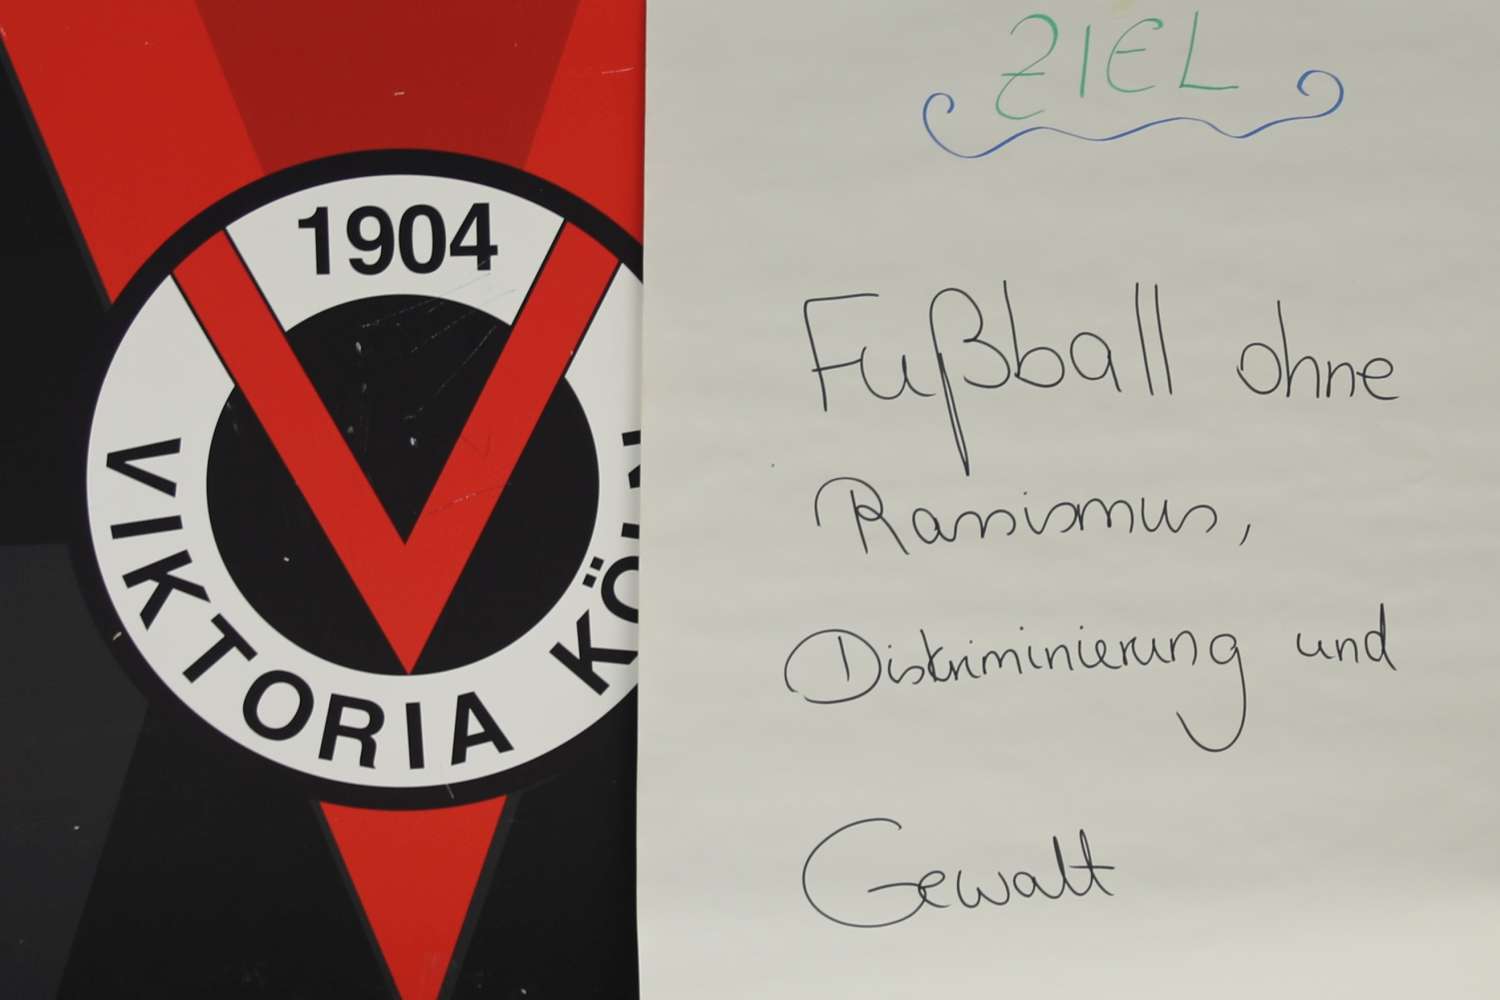 1904
VIKTORIA KÖLN
ZIEL
Fußball ohne
Rassismus,
Diskriminierung und
Gewalt